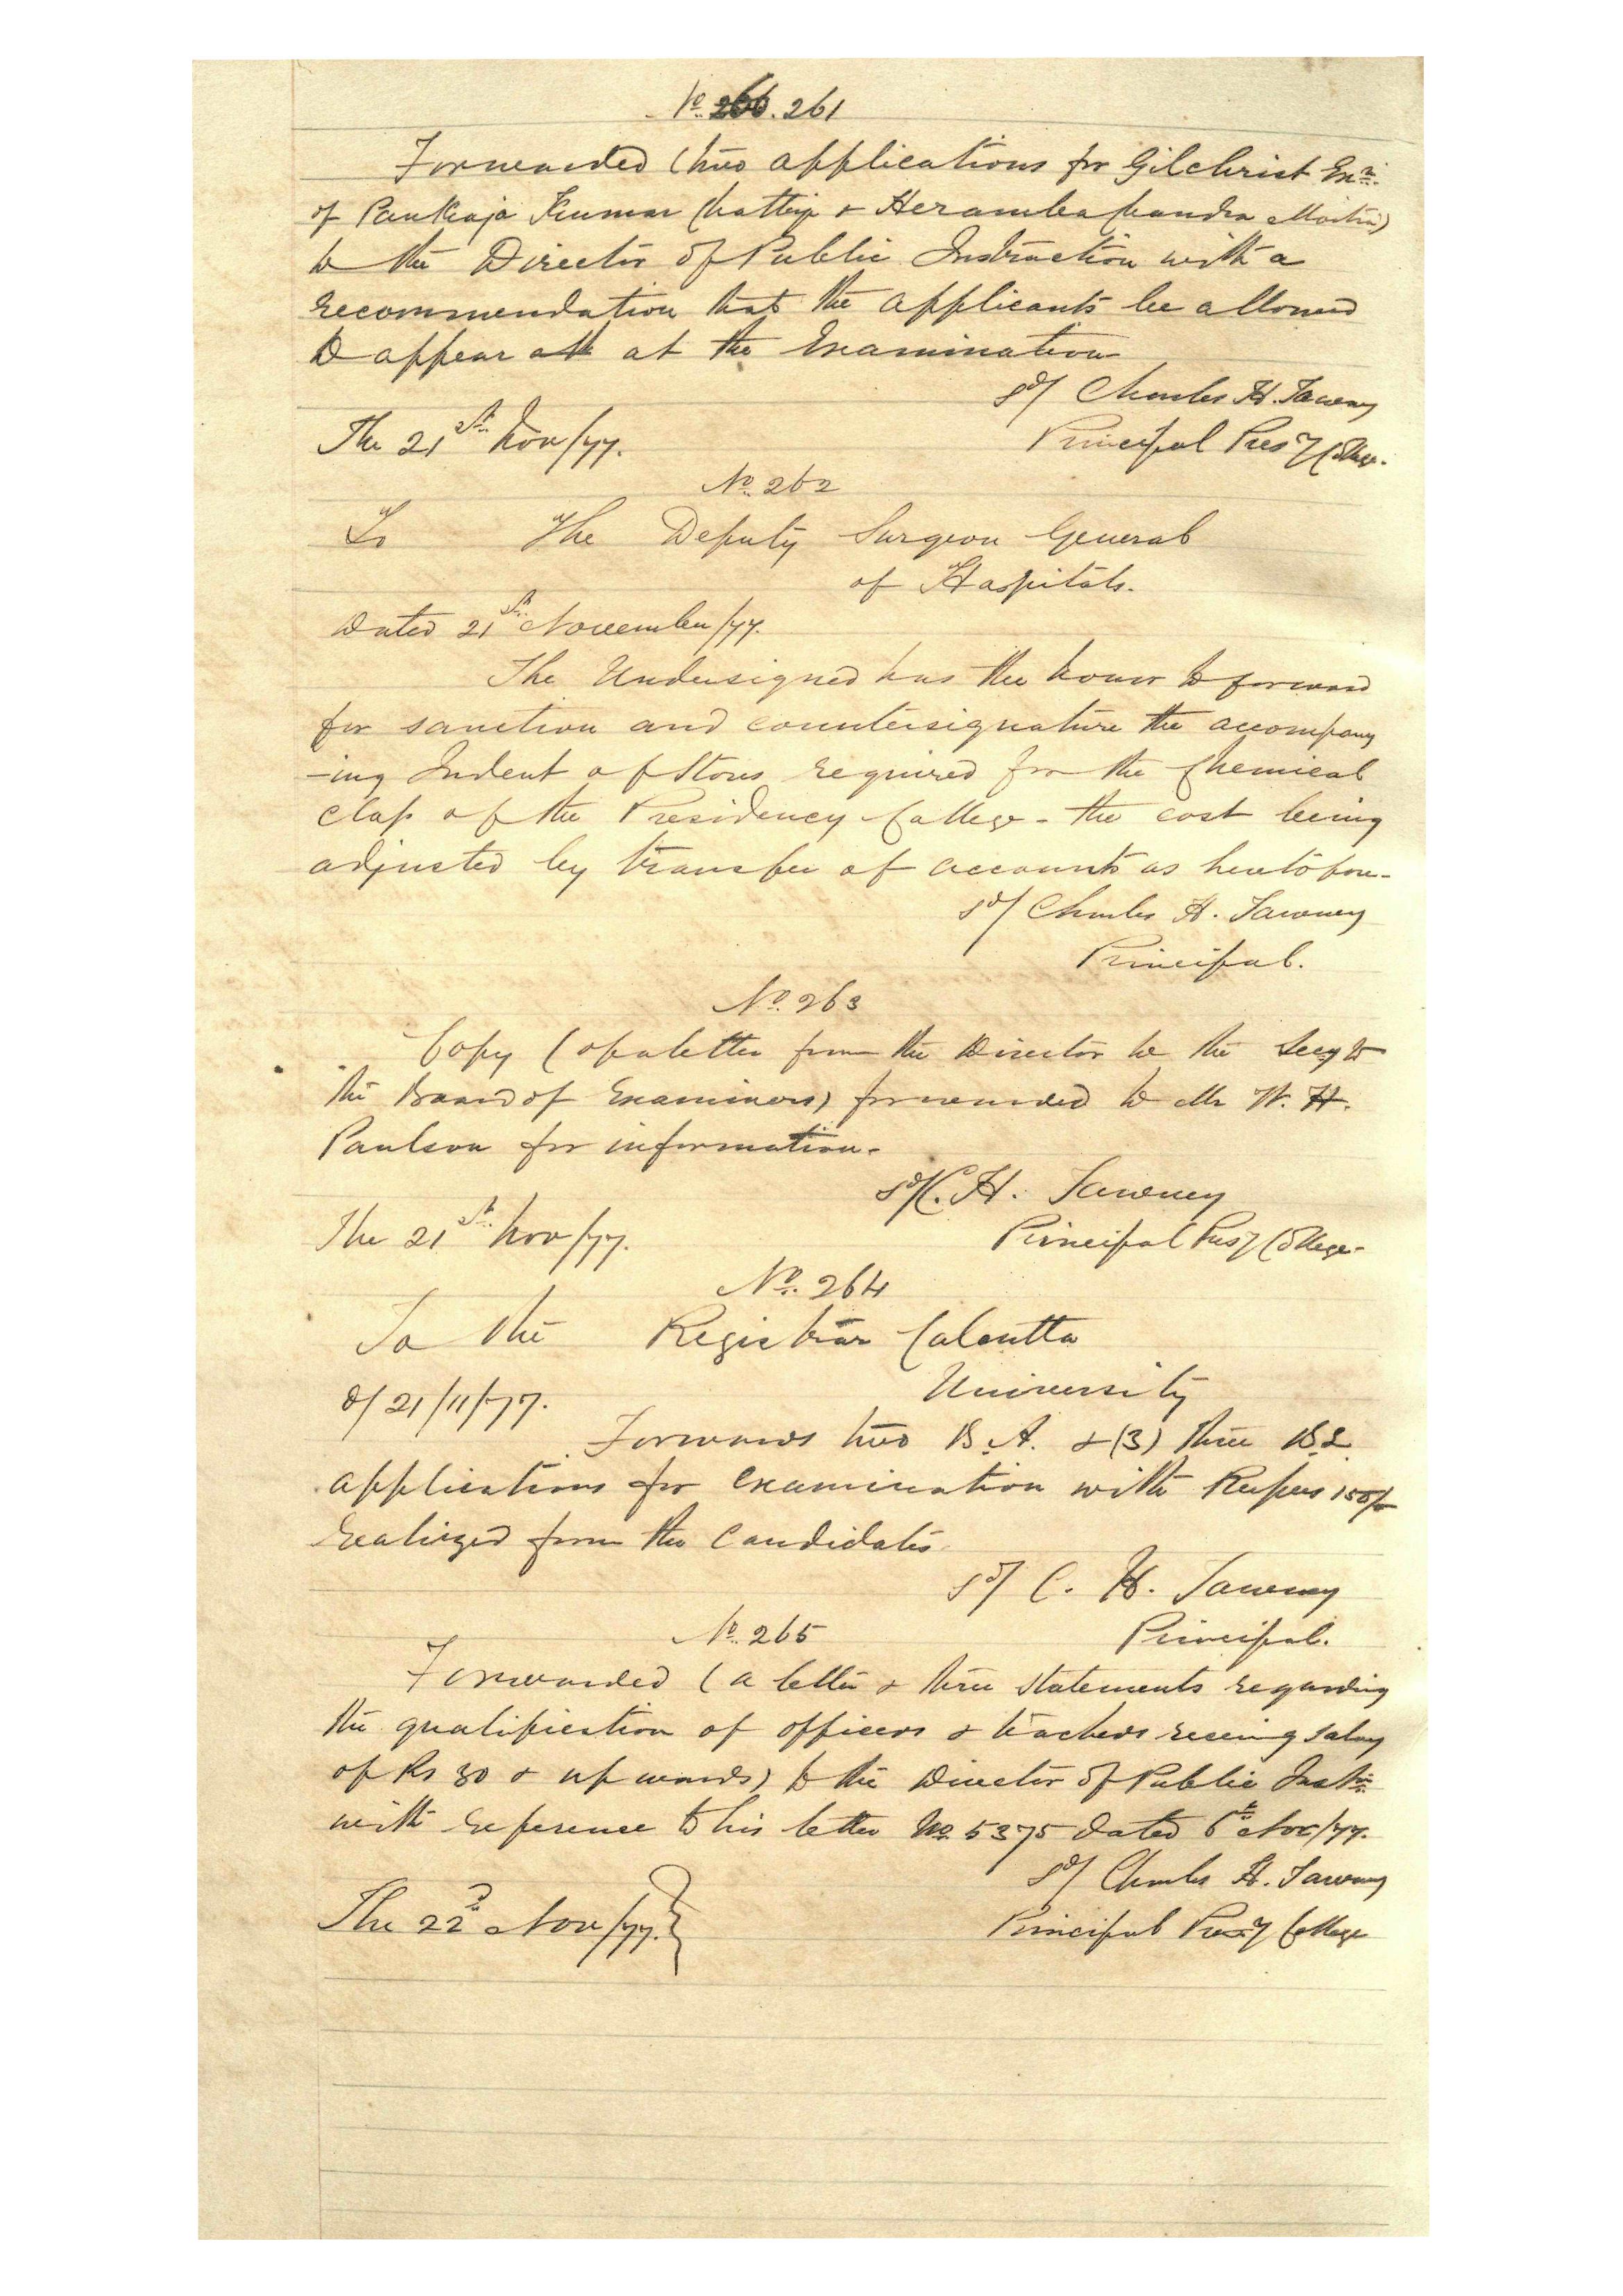 No. 261
Forwarded (two applications for Gilchrist Exn.
of Pankaja Kumar Chatterji & Heramba Chandra Moitra)
to the Director of Public Instruction with a
recommendation that the applicants be allowed
to appear at the Examination
Sd/ Charles H. Tawney
The 21st Nov/77. Principal Presy College.
No. 262
To The Deputy Surgeon General
of Hospitals.
Dated 21st November/77.
The Undersigned has the honor to forward
for sanction and countersignature the accompany
-ing Indent of Stores required for the Chemical
Class of the Presidency College - the cost being
adjusted by transfer of accounts as heretofore-
Sd/ Charles H. Tawney
Principal.
No. 263
Copy (of a letter from the Director to the Secy to
the Board of Examiners) forwarded to Mr W. H.
Paulson for information.
Sd/ C. H. Tawney
The 21st Nov/77. Principal Presy College-
No. 264
To the Registrar Calcutta
University
D/ 21/11/77.
Forwards two B.A. & (3) three B.L
applications for examination with Rupees 150/-
realized from the Candidates
Sd/ C. H. Tawney
Principal.
No. 265
Forwarded (a letter & three statements regarding
the qualification of officers & teachers receing salary
of Rs 30 & upwards) to the Director of Public Instn.
with reference to his letter No. 5375 dated 6th Nov/77.
Sd/ Charles H. Tawney
The 22d Nov/77. Principal Presy College